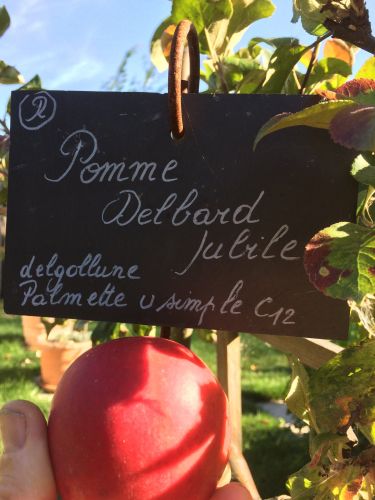 2
Pomme
Delbard
Jubile
delgollune
Palmette U simple C12